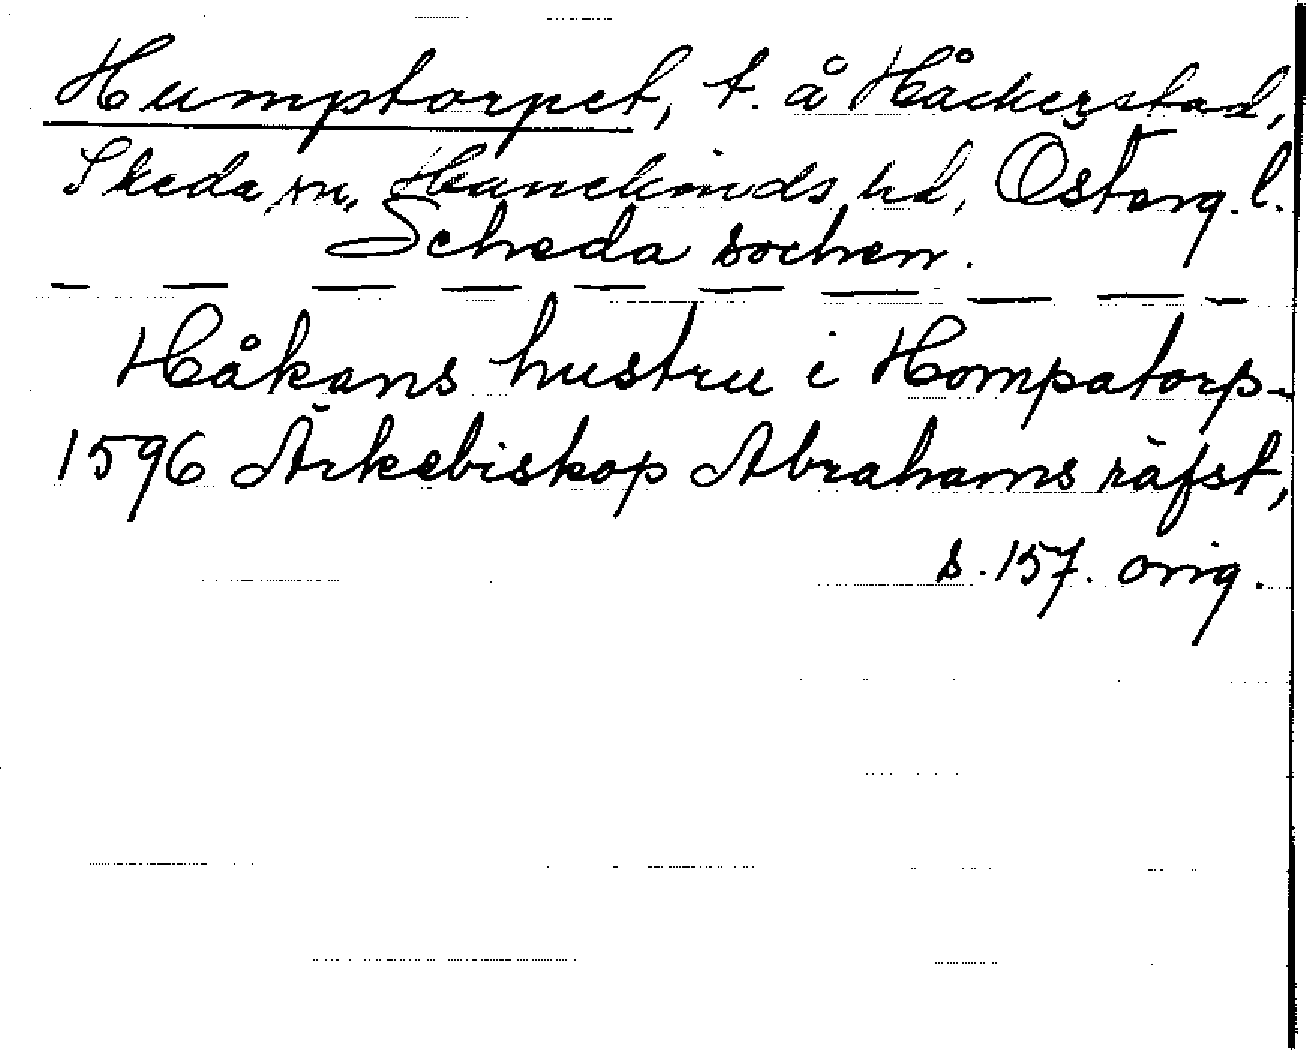 Humptorpet, t. å Håckerstad,
Skeda sn, Hanekinds hd, Österg. l.
Scheda sochen.
Håkans hustru i Hompatorp-
1596 Ärkebiskop Abrahams räfst,
s. 157. orig.